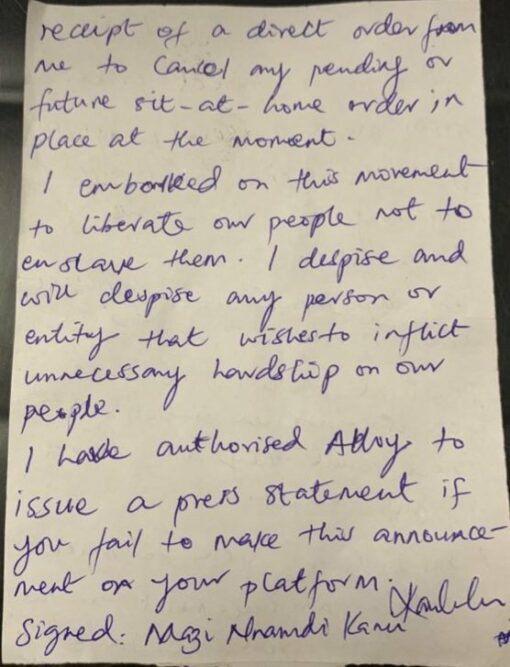 receipt of a direct order from
me to Cancel any pending or
future sit-at-home order in
place at the moment.
I embarked on this movement
to liberate our people not to
enslave them. I despise and
will despise any person or
entity that wishes to inflict
unnecessary hardship on our
people.
I have authorised Alloy to
issue a press statement if
you fail to make this announce-
ment on your platform.
Signed: Mazi Nnamdi Kanu